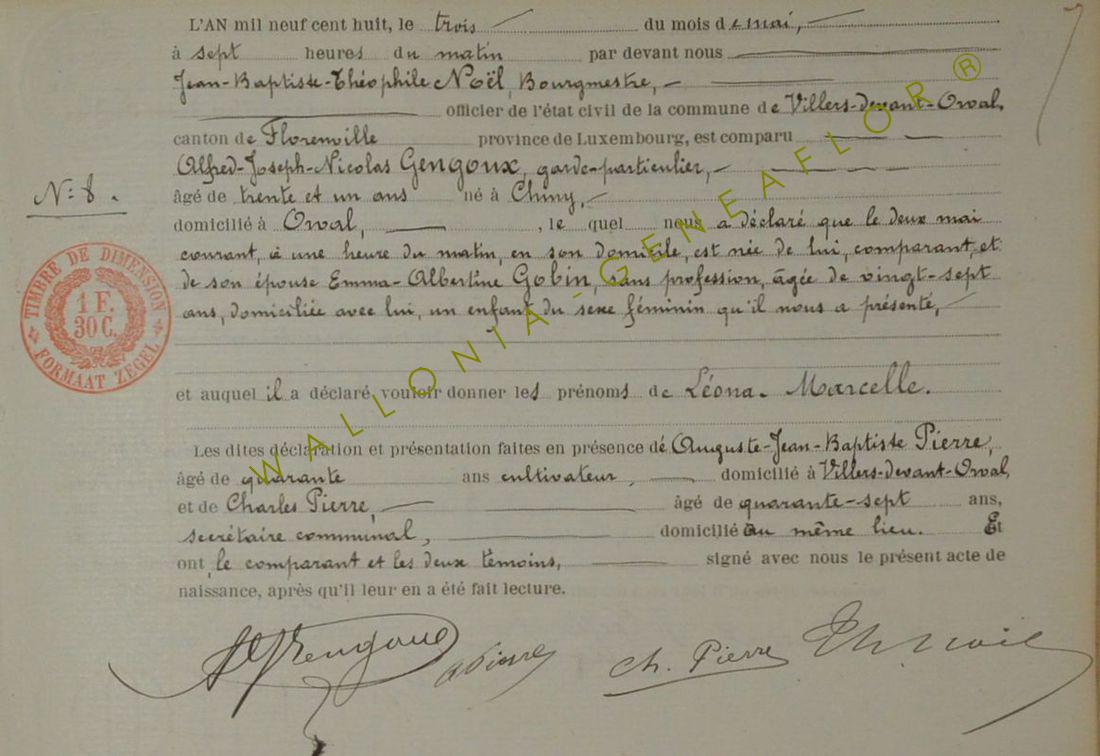 L'AN mil neuf cent huit, le trois du mois de mai,
à sept heures du matin par devant nous
Jean-Baptiste-Théophile Noël, Bourgmestre,
officier de l'état civil de la commune de Villers-devant-Orval,
canton de Florenville province de Luxembourg, est comparu
Alfred-Joseph-Nicolas Gengoux, garde-particulier,
N: 8.
âgé de trente et un ans né à Chiny,
domicilié à Orval, , le quel nous a déclaré que le deux mai
courant, à une heure du matin, en son domicile, est née de lui, comparant, et
de son épouse Emma-Albertine Gobin, sans profession, âgée de vingt-sept
ans, domiciliée avec lui, un enfant du sexe féminin qu'il nous a présenté,
TIMBRE DE DIMENSION
1 F.
30 C.
FORMAAT ZEGEL
et auquel il a déclaré vouloir donner les prénoms de Léona-Marcelle.
Les dites déclaration et présentation faites en présence de Auguste-Jean-Baptiste Pierre,
âgé de quarante ans cultivateur, domicilié à Villers-devant-Orval,
et de Charles Pierre, âgé de quarante-sept ans,
secrétaire communal, domicilié au même lieu. Et
ont le comparant et les deux témoins, signé avec nous le présent acte de
naissance, après qu'il leur en a été fait lecture.
AGengoux APierre Ch. Pierre Th Noël
WALLONIA-GENEAFLOR®